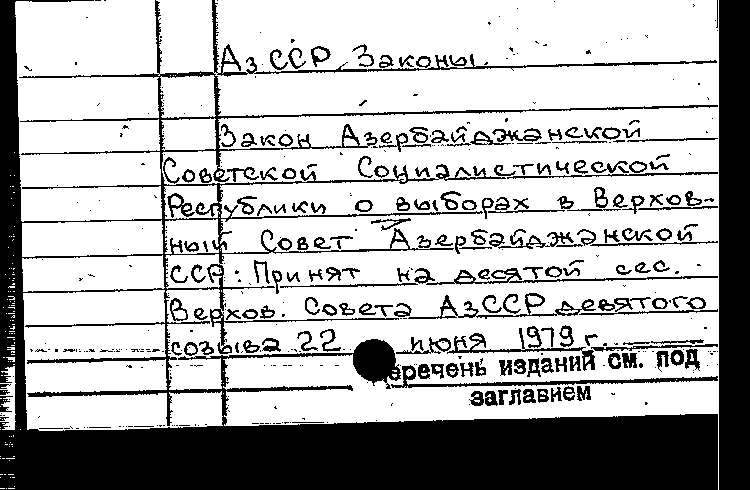 АзССР. Законы.
Закон Азербайджанской
Советской Социалистической
Республики о выборах в Верхов-
ный Совет Азербайджанской
ССР: Принят на десятой сес.
Верхов. Совета АзССР девятого
созыва 22 июня 1979 г.
Перечень изданий см. под
заглавием